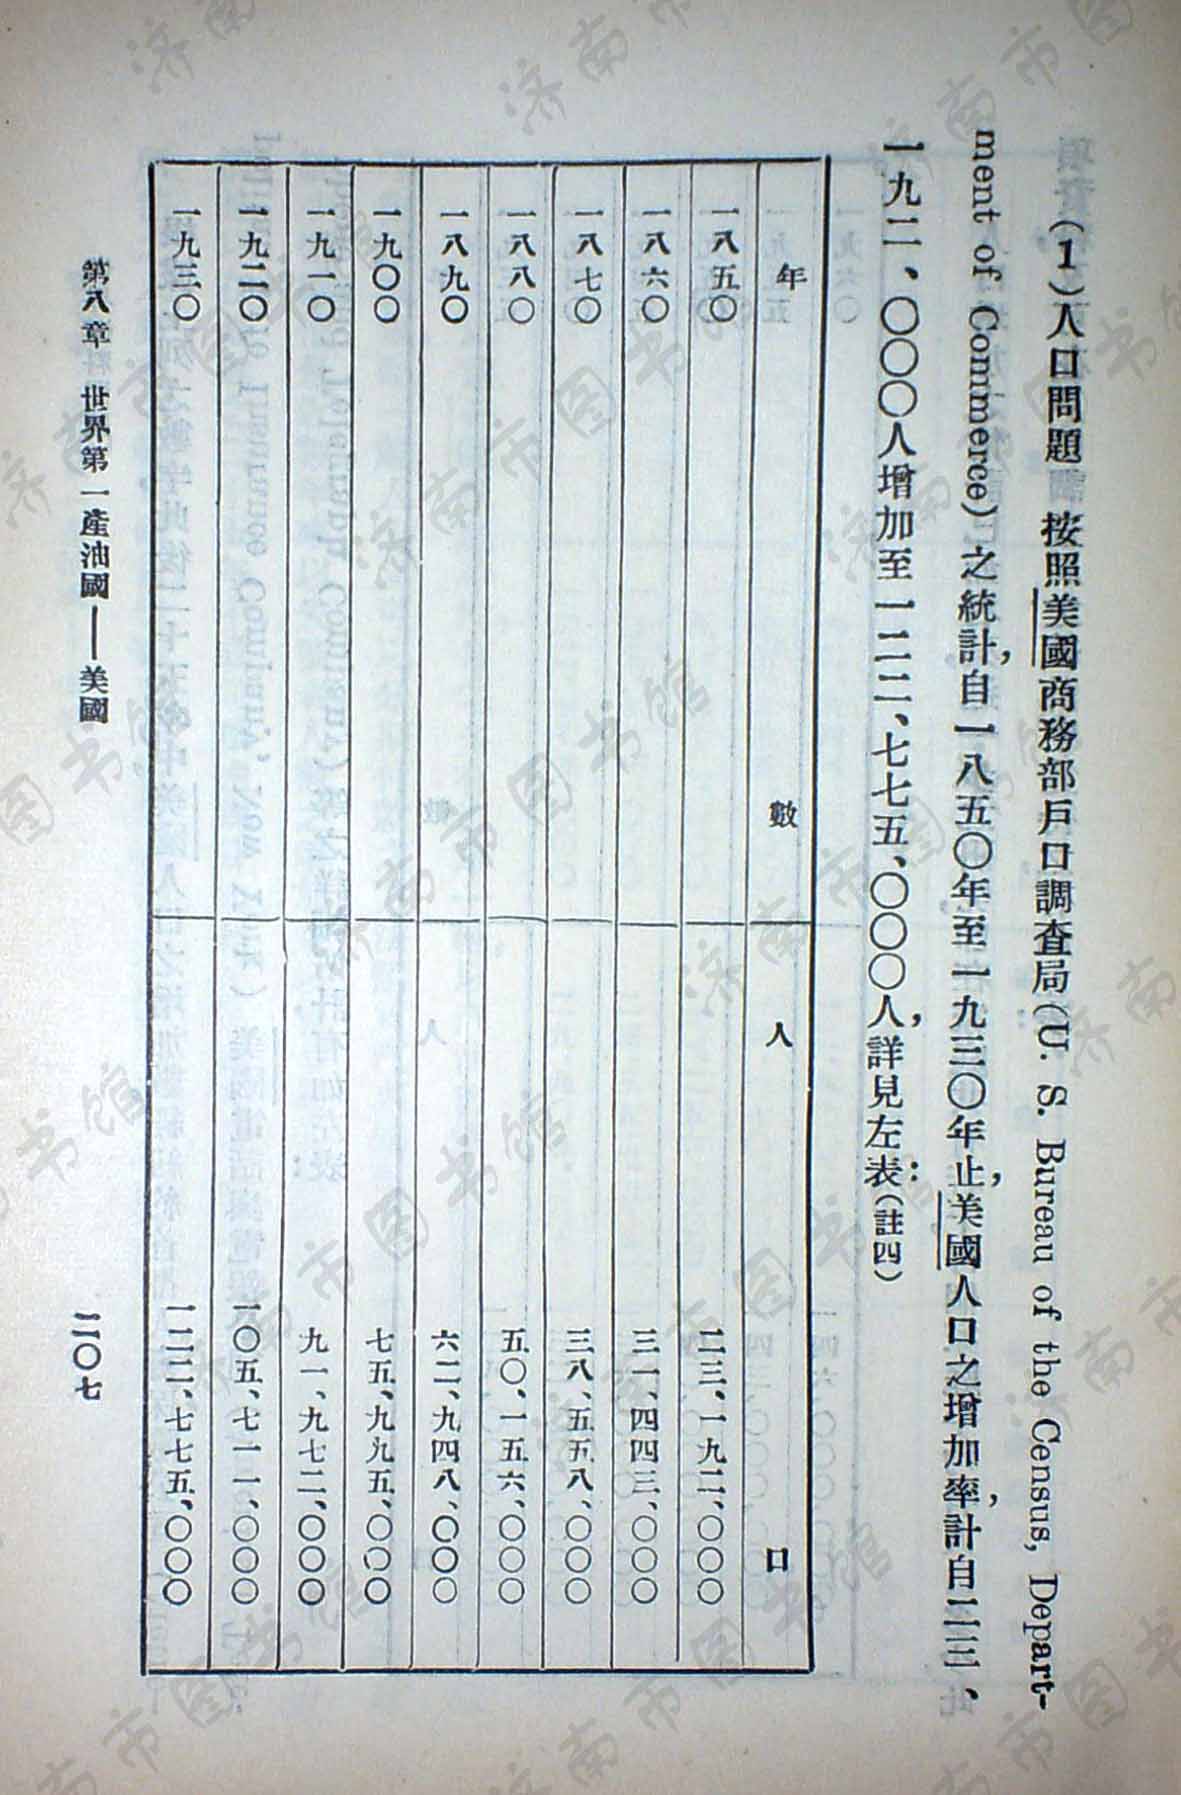 (1)人口問題　按照美國商務部戶口調查局(U. S. Bureau of the Census, Depart-
ment of Commerce)之統計,自一八五〇年至一九三〇年止,美國人口之增加率,計自二三、
一九二、〇〇〇人增加至一二二、七七五、〇〇〇人,詳見左表:(註四)
年　數　人　口
一八五〇　二三、一九二、〇〇〇
一八六〇　三一、四四三、〇〇〇
一八七〇　三八、五五八、〇〇〇
一八八〇　五〇、一五六、〇〇〇
一八九〇　六二、九四八、〇〇〇
一九〇〇　七五、九九五、〇〇〇
一九一〇　九一、九七二、〇〇〇
一九二〇　一〇五、七一一、〇〇〇
一九三〇　一二二、七七五、〇〇〇
第八章　世界第一產油國——美國　二〇七
济南市图书馆